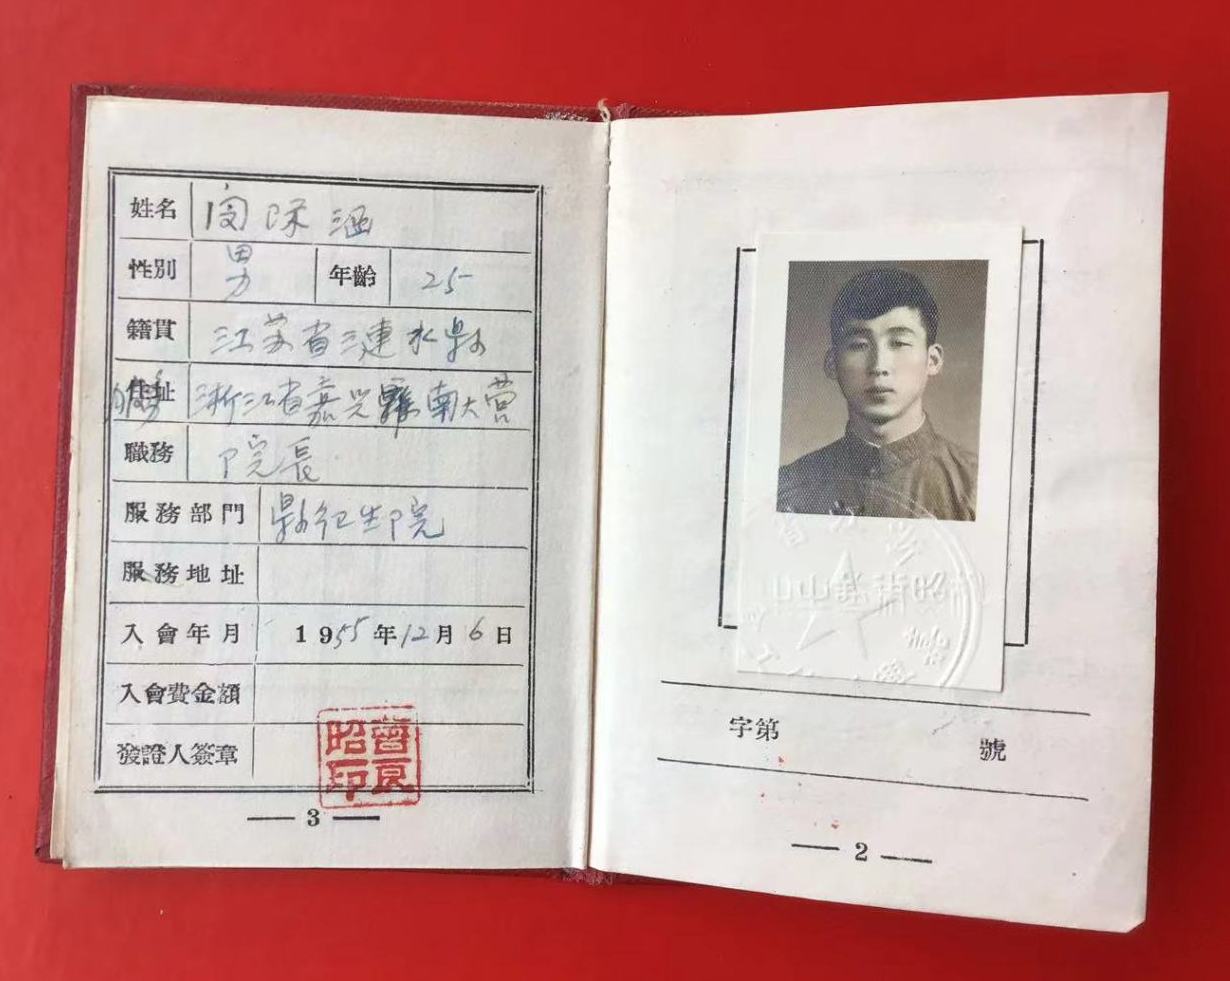 姓名 闵际涵
性別 男 年齡 25
籍貫 江苏省涟水縣
住址 浙江省嘉兴縣南大营
職務 院長
服務部門 縣衛生院
服務地址
入會年月 1955年12月6日
入會費金額
發證人簽章
曾良昭印
3
字第 號
2